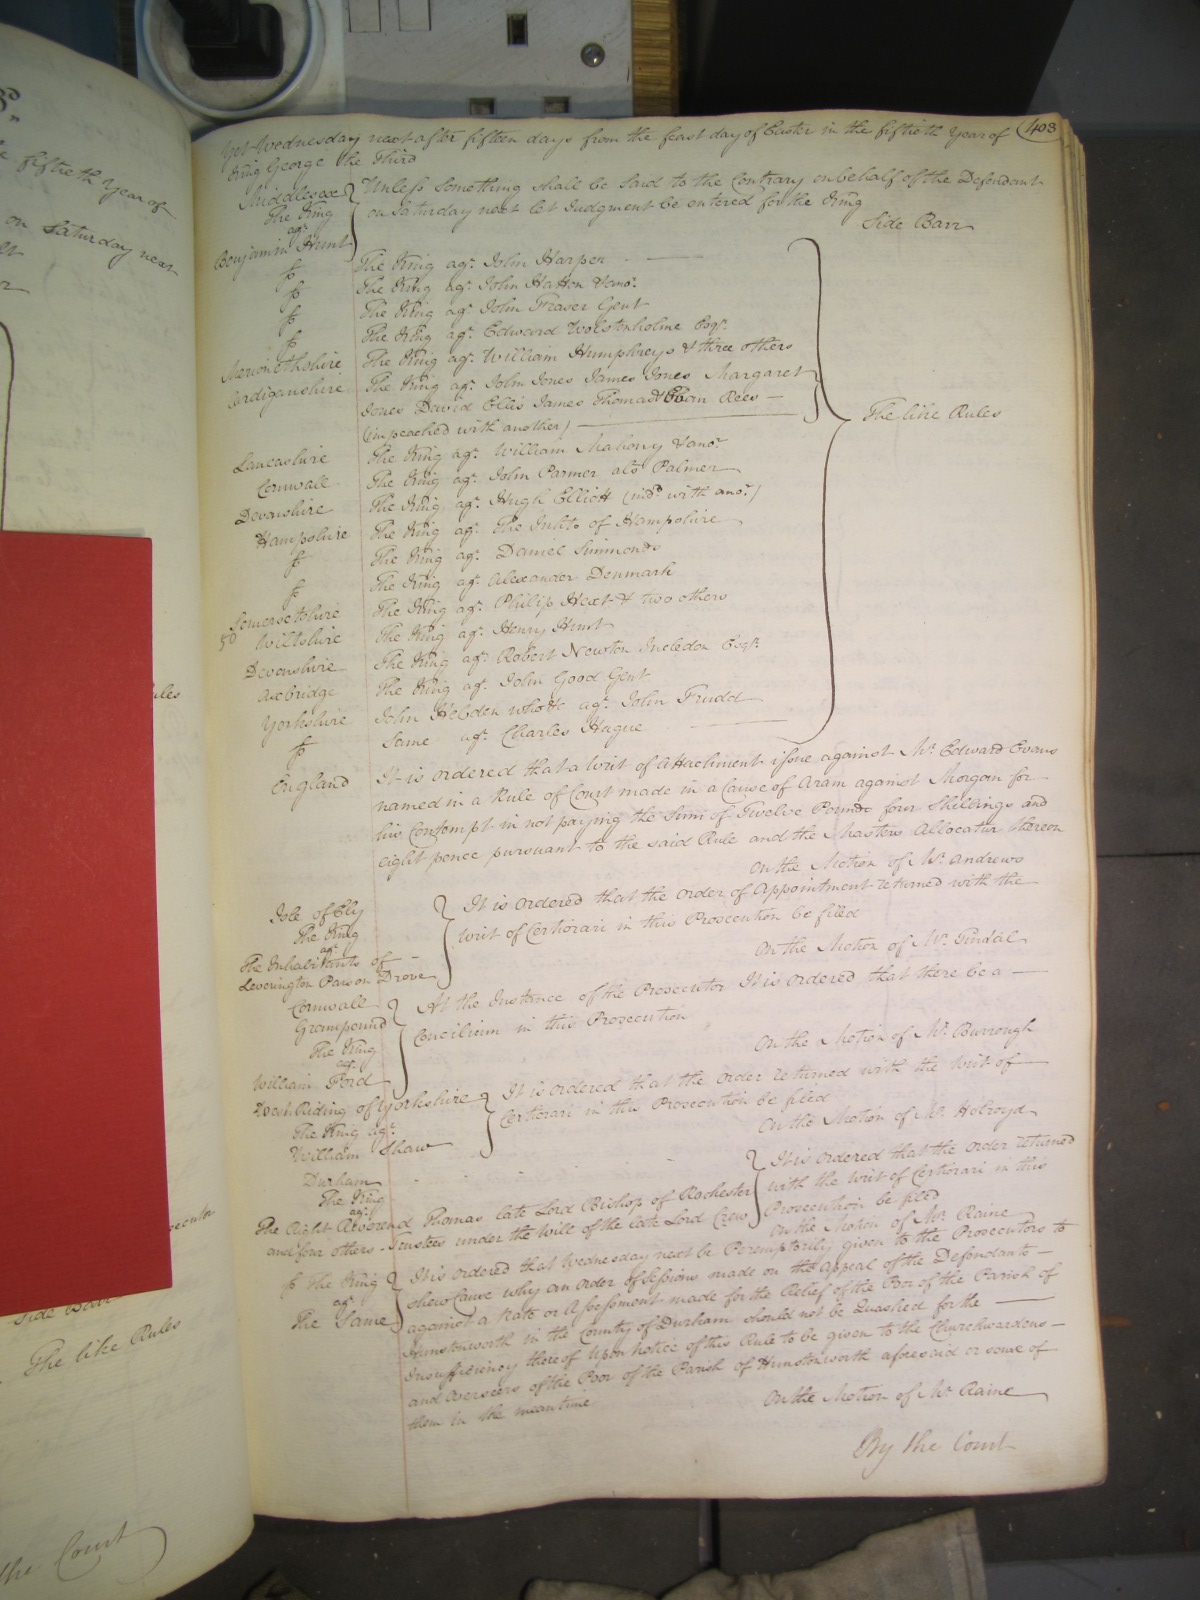 403
Yet Wednesday next after fifteen days from the feast day of Easter in the fiftieth Year of
King George the Third
Middlesex
The King
agt.
Benjamin Hunt
Unless something shall be said to the Contrary on behalf of the Defendant
on Saturday next let Judgment be entered for the King
Side Barr
The King agt. John Harper
The King agt. John Hatton & anor.
The King agt. John Fraser Gent
The King agt. Edward Wolstenholme Esqr.
Merionethshire The King agt. William Humphreys & three others
Cardiganshire The King agt. John Jones James Jones Margaret
Jones David Ellis James Thomas & Evan Rees
(impeached with another)
The like Rules
Lancashire The King agt. William Mahony & anor.
Cornwall The King agt. John Parmer als. Palmer
Devonshire The King agt. Hugh Elliott (indd. with anor.)
Hampshire The King agt. The Inhts. of Hampshire
The King agt. Daniel Simmonds
The King agt. Alexander Denmark
Somersetshire The King agt. Philip Hext & two others
50 Wiltshire The King agt. Henry Hunt
Devonshire The King agt. Robert Newton Incledon Esqr.
Axbridge The King agt. John Good Gent
Yorkshire John Hebden who &c. agt. John Frudd
Same agt. Charles Hague
England It is ordered that a Writ of Attachment issue against Mr. Edward Evans
named in a Rule of Court made in a Cause of Aram against Morgan for
his Contempt in not paying the Sum of Twelve Pounds four Shillings and
eight pence pursuant to the said Rule and the Masters Allocatur thereon
On the Motion of Mr. Andrews
Isle of Ely
The King
agt.
The Inhabitants of
Leverington Parson Drove
It is ordered that the order of Appointment returned with the
Writ of Certiorari in this Prosecution be filed
On the Motion of Mr. Tindal
Cornwall
Grampound
The King
agt.
William Ford
At the Instance of the Prosecutor It is ordered that there be a
Concilium in this Prosecution
On the Motion of Mr. Burrough
West Riding of Yorkshire
The King agt.
William Shaw
It is ordered that the order returned with the Writ of
Certiorari in this Prosecution be filed
On the Motion of Mr. Holroyd
Durham
The King
agt.
The Right Reverend Thomas late Lord Bishop of Rochester
and four others Trustees under the Will of the late Lord Crew
It is ordered that the order returned
with the Writ of Certiorari in this
Prosecution be filed
On the Motion of Mr. Raine
The King
agt.
The Same
It is ordered that Wednesday next be Peremptorily given to the Prosecutors to
shew Cause why an order of Sessions made on the Appeal of the Defendants
against a Rate or Assessment made for the Relief of the Poor of the Parish of
Hunstonworth in the County of Durham should not be Quashed for the
insufficiency thereof Upon Notice of this Rule to be given to the Churchwardens
and Overseers of the Poor of the Parish of Hunstonworth aforesaid or some of
them in the mean time
On the Motion of Mr. Raine
By the Court
fiftieth Year of
on Saturday next
Side Barr
The like Rules
the Court